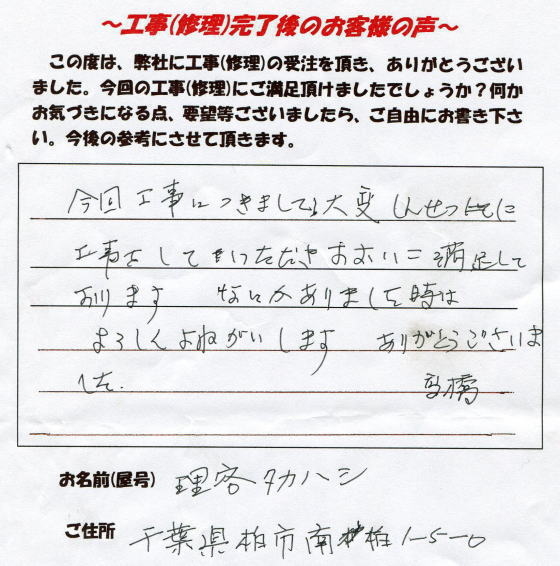 ～工事(修理)完了後のお客様の声～
この度は、弊社に工事(修理)の受注を頂き、ありがとうござい
ました。今回の工事(修理)にご満足頂けましたでしょうか？何か
お気づきになる点、要望等ございましたら、ご自由にお書き下さ
い。今後の参考にさせて頂きます。
今回工事につきまして 大変しんせつ に
工事をして いただき おおいに満足して
おります ないかありました時は
よろしく おねがいします ありがとうございま
した. 高橋
お名前(屋号) 理容タカハシ
ご住所 千葉県柏市南柏1-5-10